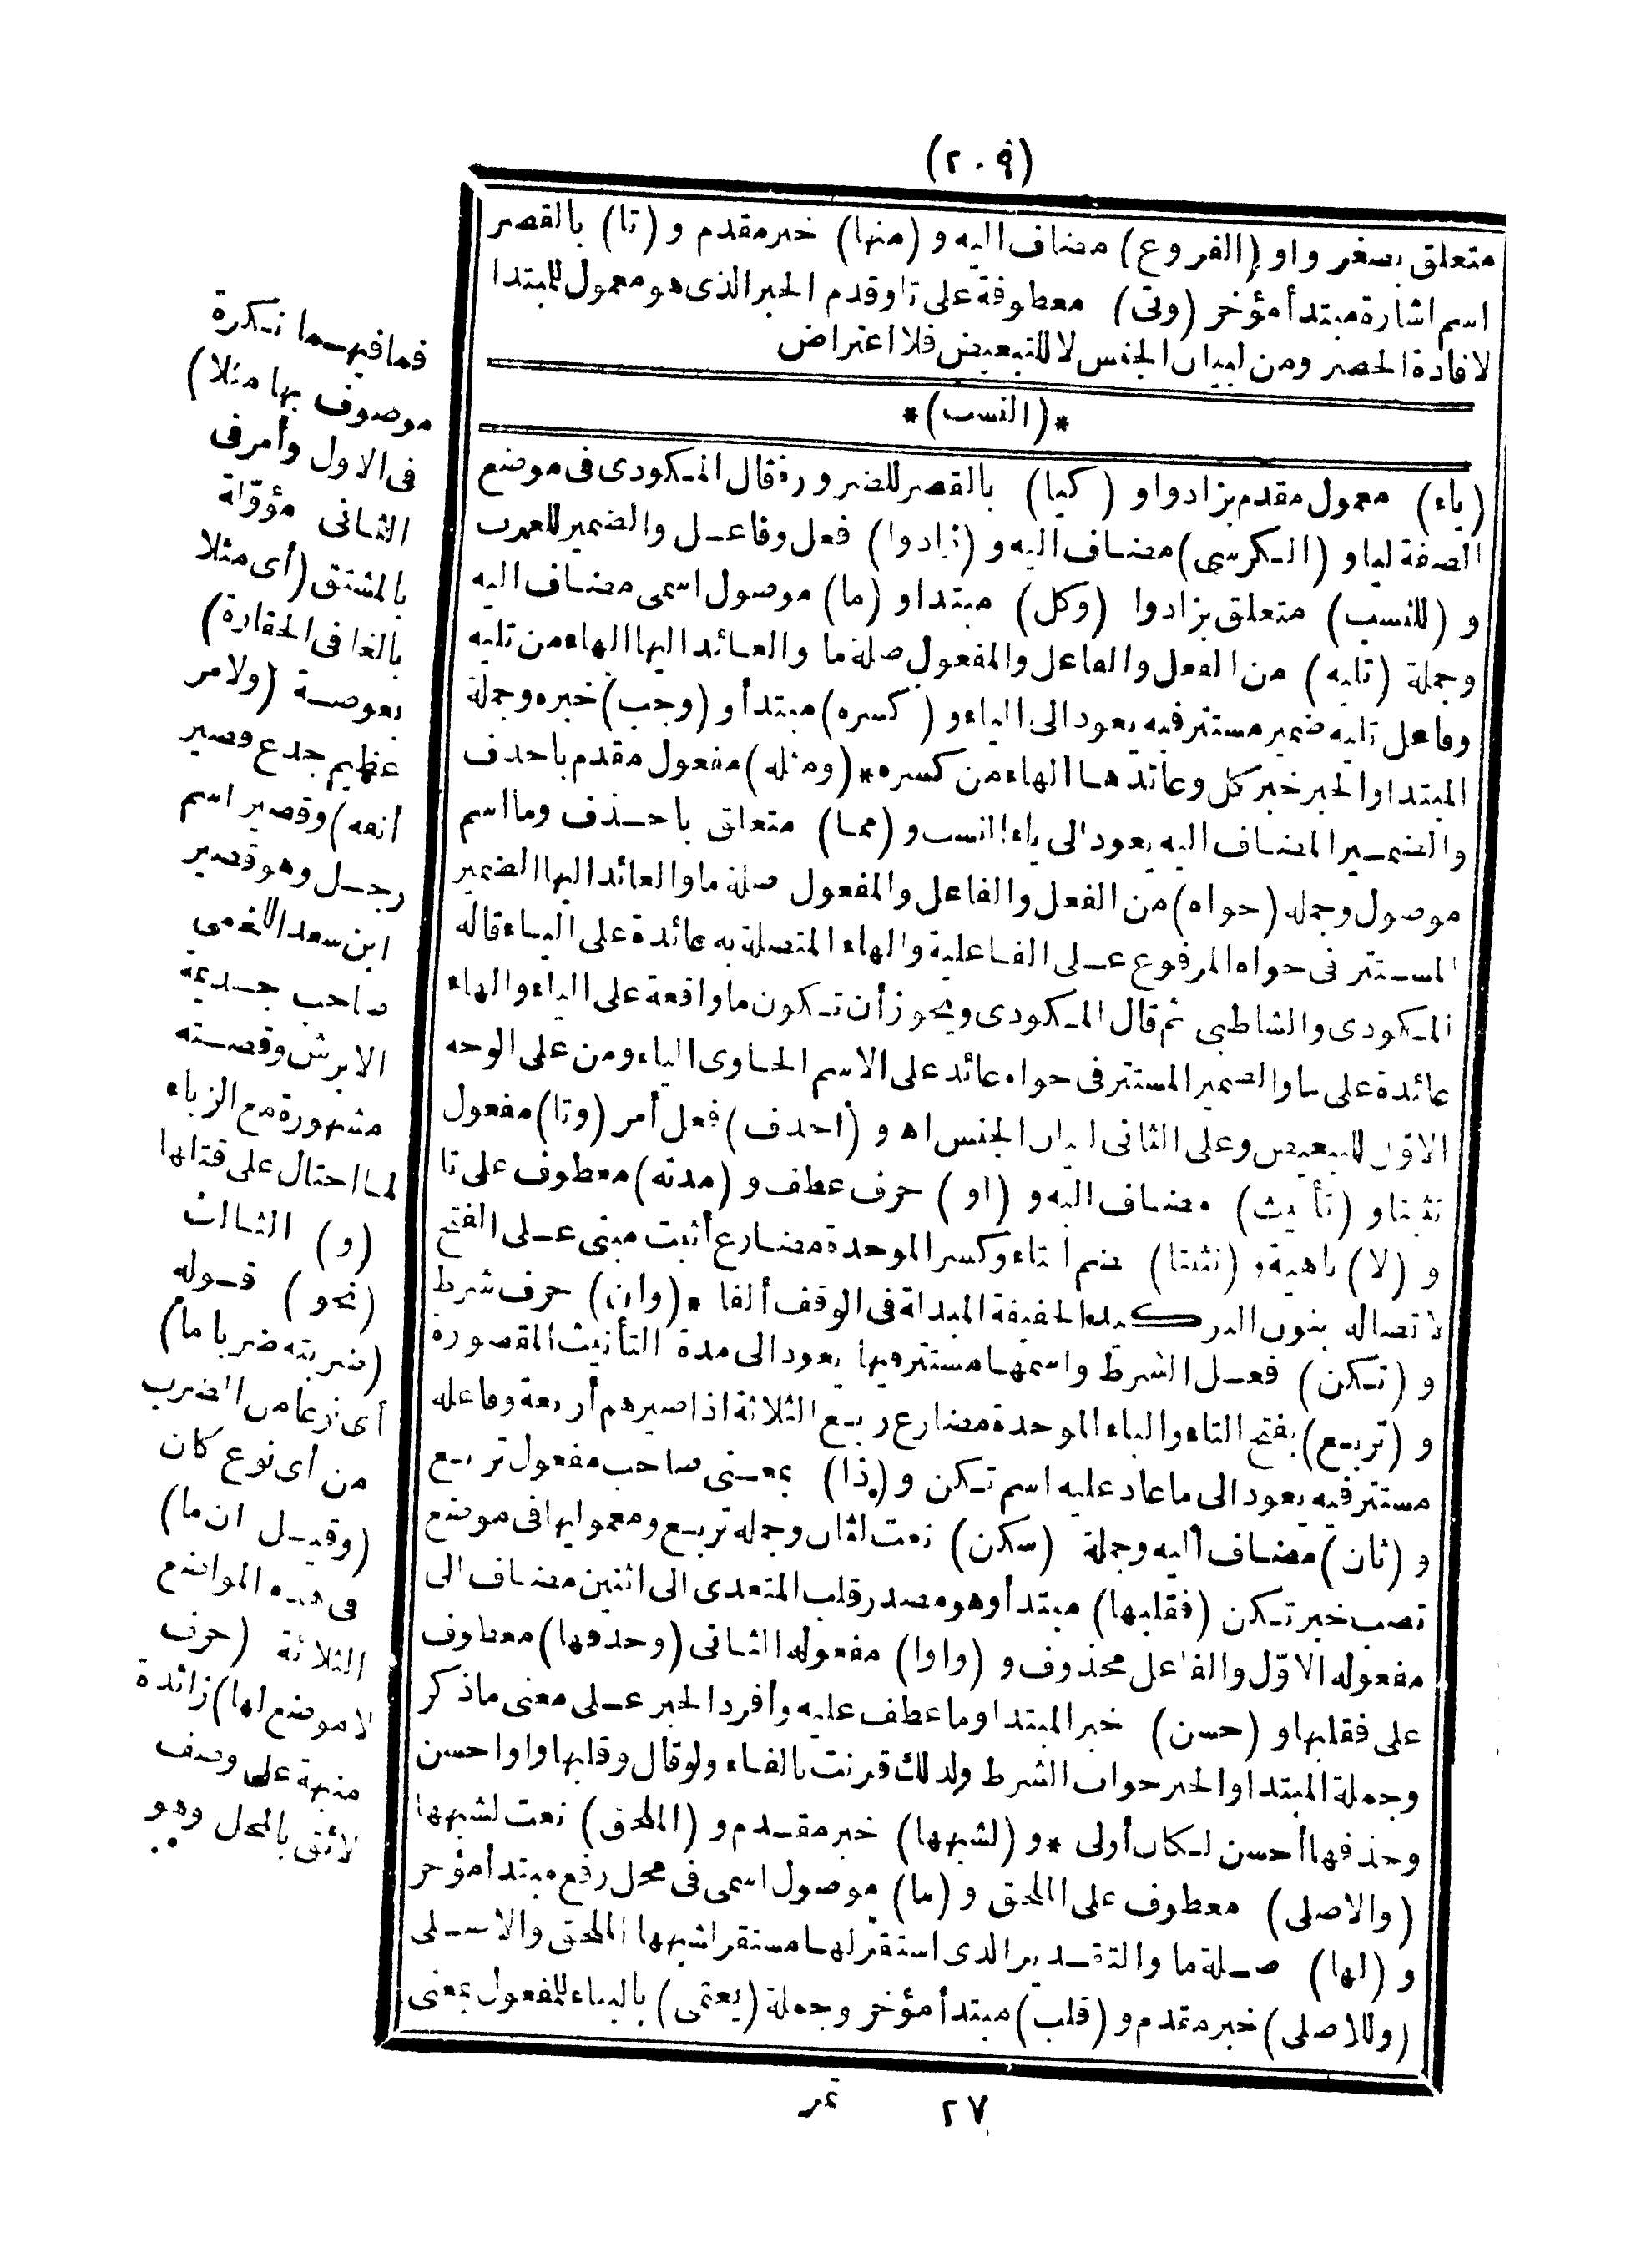 (٢٠٩)
متعلق بصغر واو (الفروع) مضاف اليه و (منها) خبر مقدم و (تا) بالقصر
اسم اشارة مبتدأ مؤخر (وتى) معطوفة على تا وقدم الخبر الذى هو معمول للمبتدا
لافادة الحصر ومن لبيان الجنس لا للتبعيض فلا اعتراض
*(النسب)*
(ياء) معمول مقدم بزادوا و (كيا) بالقصر للضرورة قال المكودى فى موضع
الصفة ليا و (الكرسى) مضاف اليه و (زادوا) فعل وفاعل والضمير للعرب
و (للنسب) متعلق بزادوا (وكل) مبتدا و (ما) موصول اسمى مضاف اليه
وجملة (تليه) من الفعل والفاعل والمفعول صلة ما والعائد اليها الهاء من تليه
وفاعل تليه ضمير مستتر فيه يعود الى الياء و (كسره) مبتدأ و (وجب) خبره وجملة
المبتدا والخبر خبر كل وعائدها الهاء من كسره * (ومثله) مفعول مقدم باحذف
والضمير المضاف اليه يعود الى ياء النسب و (مما) متعلق باحذف وما اسم
موصول وجملة (حواه) من الفعل والفاعل والمفعول صلة ما والعائد اليها الضمير
المستتر فى حواه المرفوع على الفاعلية والهاء المتصلة به عائدة على الياء قاله
المكودى والشاطبى ثم قال المكودى ويجوز أن تكون ما واقعة على الياء والهاء
عائدة على ما والضمير المستتر فى حواه عائد على الاسم الحاوى الياء ومن على الوجه
الاوّل للتبعيض وعلى الثانى لبيان الجنس اه و (احذف) فعل أمر (وتا) مفعول
تثبتا و (تأنيث) مضاف اليه و (او) حرف عطف و (مدته) معطوف على تا
و (لا) ناهية و (تثبتا) بضم التاء وكسر الموحدة مضارع أثبت مبنى على الفتح
لاتصاله بنون التوكيد الخفيفة المبدلة فى الوقف ألفا * (وان) حرف شرط
و (تكن) فعل الشرط واسمها مستتر فيها يعود الى مدة التأنيث المقصورة
و (تربع) بفتح التاء والباء الموحدة مضارع ربع الثلاثة اذا صيرهم أربعة وفاعله
مستتر فيه يعود الى ما عاد عليه اسم تكن و (ذا) بمعنى صاحب مفعول تربع
و (ثان) مضاف اليه وجملة (سكن) نعت لثان وجملة تربع ومعمولها فى موضع
نصب خبر تكن (فقلبها) مبتدأ وهو مصدر قلب المتعدى الى اثنين مضاف الى
مفعوله الاوّل والفاعل محذوف و (واوا) مفعوله الثانى (وحذفها) معطوف
على فقلبها و (حسن) خبر المبتدا وما عطف عليه وأفرد الخبر على معنى ما ذكر
وجملة المبتدا والخبر جواب الشرط ولذلك قرنت بالفاء ولو قال وقلبها واوا حسن
وحذفها أحسن لكان أولى * و (لشبهها) خبر مقدم و (الملحق) نعت لشبهها
(والاصلى) معطوف على الملحق و (ما) موصول اسمى فى محل رفع مبتدأ مؤخر
و (لها) صلة ما والتقدير الذى استقر لها مستقر لشبهها الملحق والاصلى
(وللاصلى) خبر مقدم و (قلب) مبتدأ مؤخر وجملة (يعتمى) بالبناء للمفعول بمعنى
فما فيهما نكرة
موصوف بها مثلا)
فى الاول وأمر فى
الثانى مؤوّلة
بالمشتق (أى مثلا
بالغا فى الحقارة)
بعوضة (ولامر
عظيم جدع قصير
أنفه) وقصير اسم
رجل وهو قصير
ابن سعد اللخمى
صاحب جذيمة
الابرش وقصته
مشهورة مع الزباء
لما احتال على قتلها
(و) الثالث
(نحو) قوله
(ضربته ضربا ما)
أى نوعا من الضرب
من أى نوع كان
(وقيل ان ما)
فى هذه المواضع
الثلاثة (حرف
لا موضع لها) زائدة
منبهة على وصف
لائق بالمحل وهو
٢٧ تمر